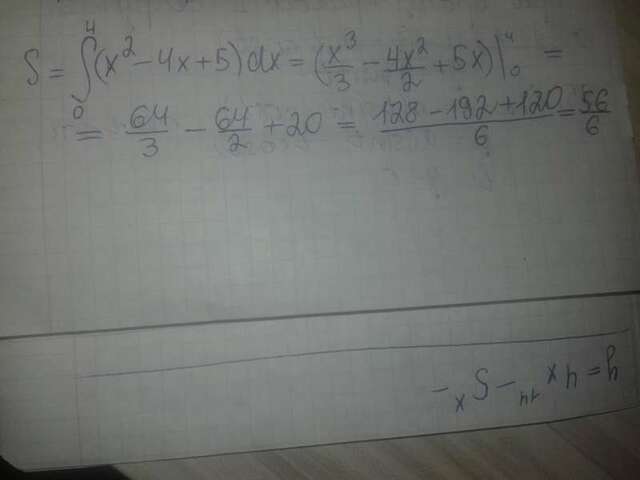 S = ∫₀⁴ (x² - 4x + 5) dx = (x³/3 - 4x²/2 + 5x)|₀⁴ =
= 64/3 - 64/2 + 20 = (128 - 192 + 120)/6 = 56/6
y = 4x¹⁴ - 5x -